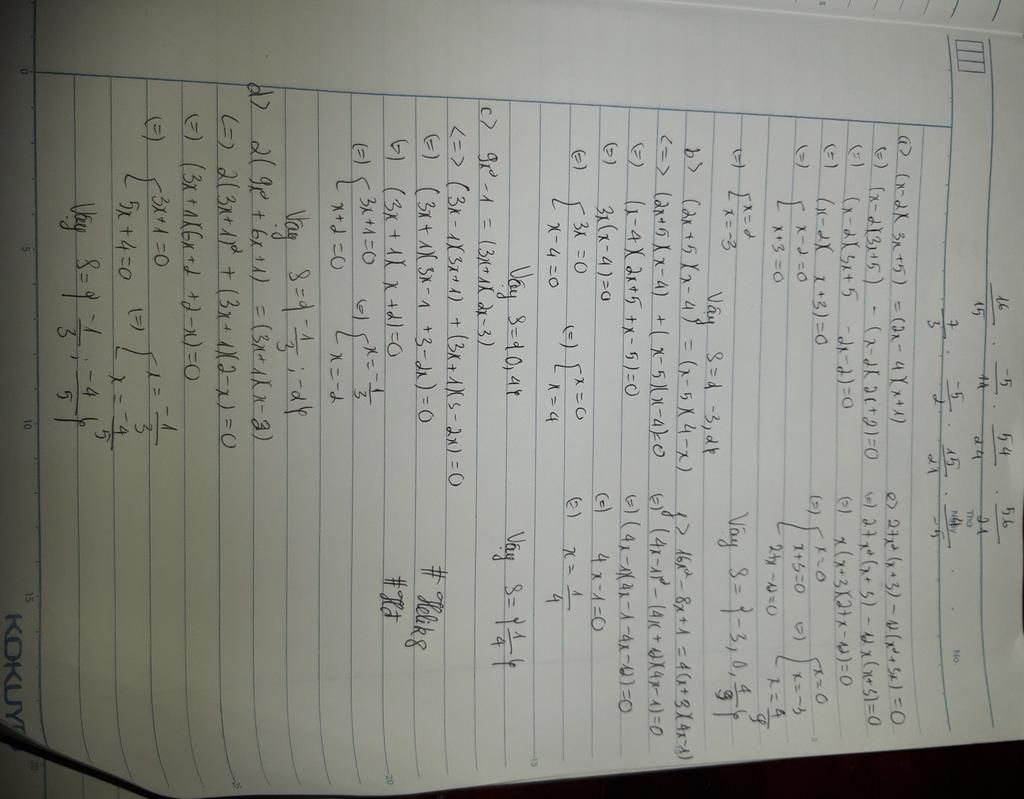 16/15 . -5/14 . 54/24 . 56/21
7/3 . -5/2 . 15/21 . 4/-5
Thứ
Ngày
No.
a> (x-2)(3x+5) = (2x-4)(x+1)
(=) (x-2)(3x+5) - (x-2)(2x+2)=0
(=) (x-2)(3x+5 -2x-2)=0
(=) (x-2)(x+3)=0
(=) [x-2=0
x+3=0
(=) [x=2
x=-3
Vậy S={-3,2}
b> (2x+5)(x-4) = (x-5)(4-x)
<=> (2x+5)(x-4) + (x-5)(x-4)=0
(=) (x-4)(2x+5+x-5)=0
(=) 3x(x-4)=0
(=) [3x=0 (=) [x=0
x-4=0 x=4
Vậy S={0,4}
c> 9x²-1 = (3x+1)(2x-3)
<=> (3x-1)(3x+1) + (3x+1)(3-2x)=0
(=) (3x+1)(3x-1+3-2x)=0
(=) (3x+1)(x+2)=0
(=) [3x+1=0 (=) [x=-1/3
x+2=0 x=-2
Vậy S={-1/3; -2}
d> 2(9x²+6x+1) = (3x+1)(x-2)
<=> 2(3x+1)² + (3x+1)(2-x)=0
(=) (3x+1)(6x+2+2-x)=0
(=) [3x+1=0 (=) [x=-1/3
5x+4=0 x=-4/5
Vậy S={-1/3; -4/5}
e> 27x²(x+3) - 12(x²+3x)=0
(=) 27x²(x+3) - 12x(x+3)=0
(=) x(x+3)(27x-12)=0
(=) [x=0 (=) [x=0
x+3=0 x=-3
27x-12=0 x=4/9
Vậy S={-3,0,4/9}
f> 16x²-8x+1=4(x+3)(4x-1)
(=) (4x-1)²-(4x+12)(4x-1)=0
(=) (4x-1)(4x-1-4x-12)=0
(=) 4x-1=0
(=) x=1/4
Vậy S={1/4}
#Hđ
KOKUY
0
5
10
15
20